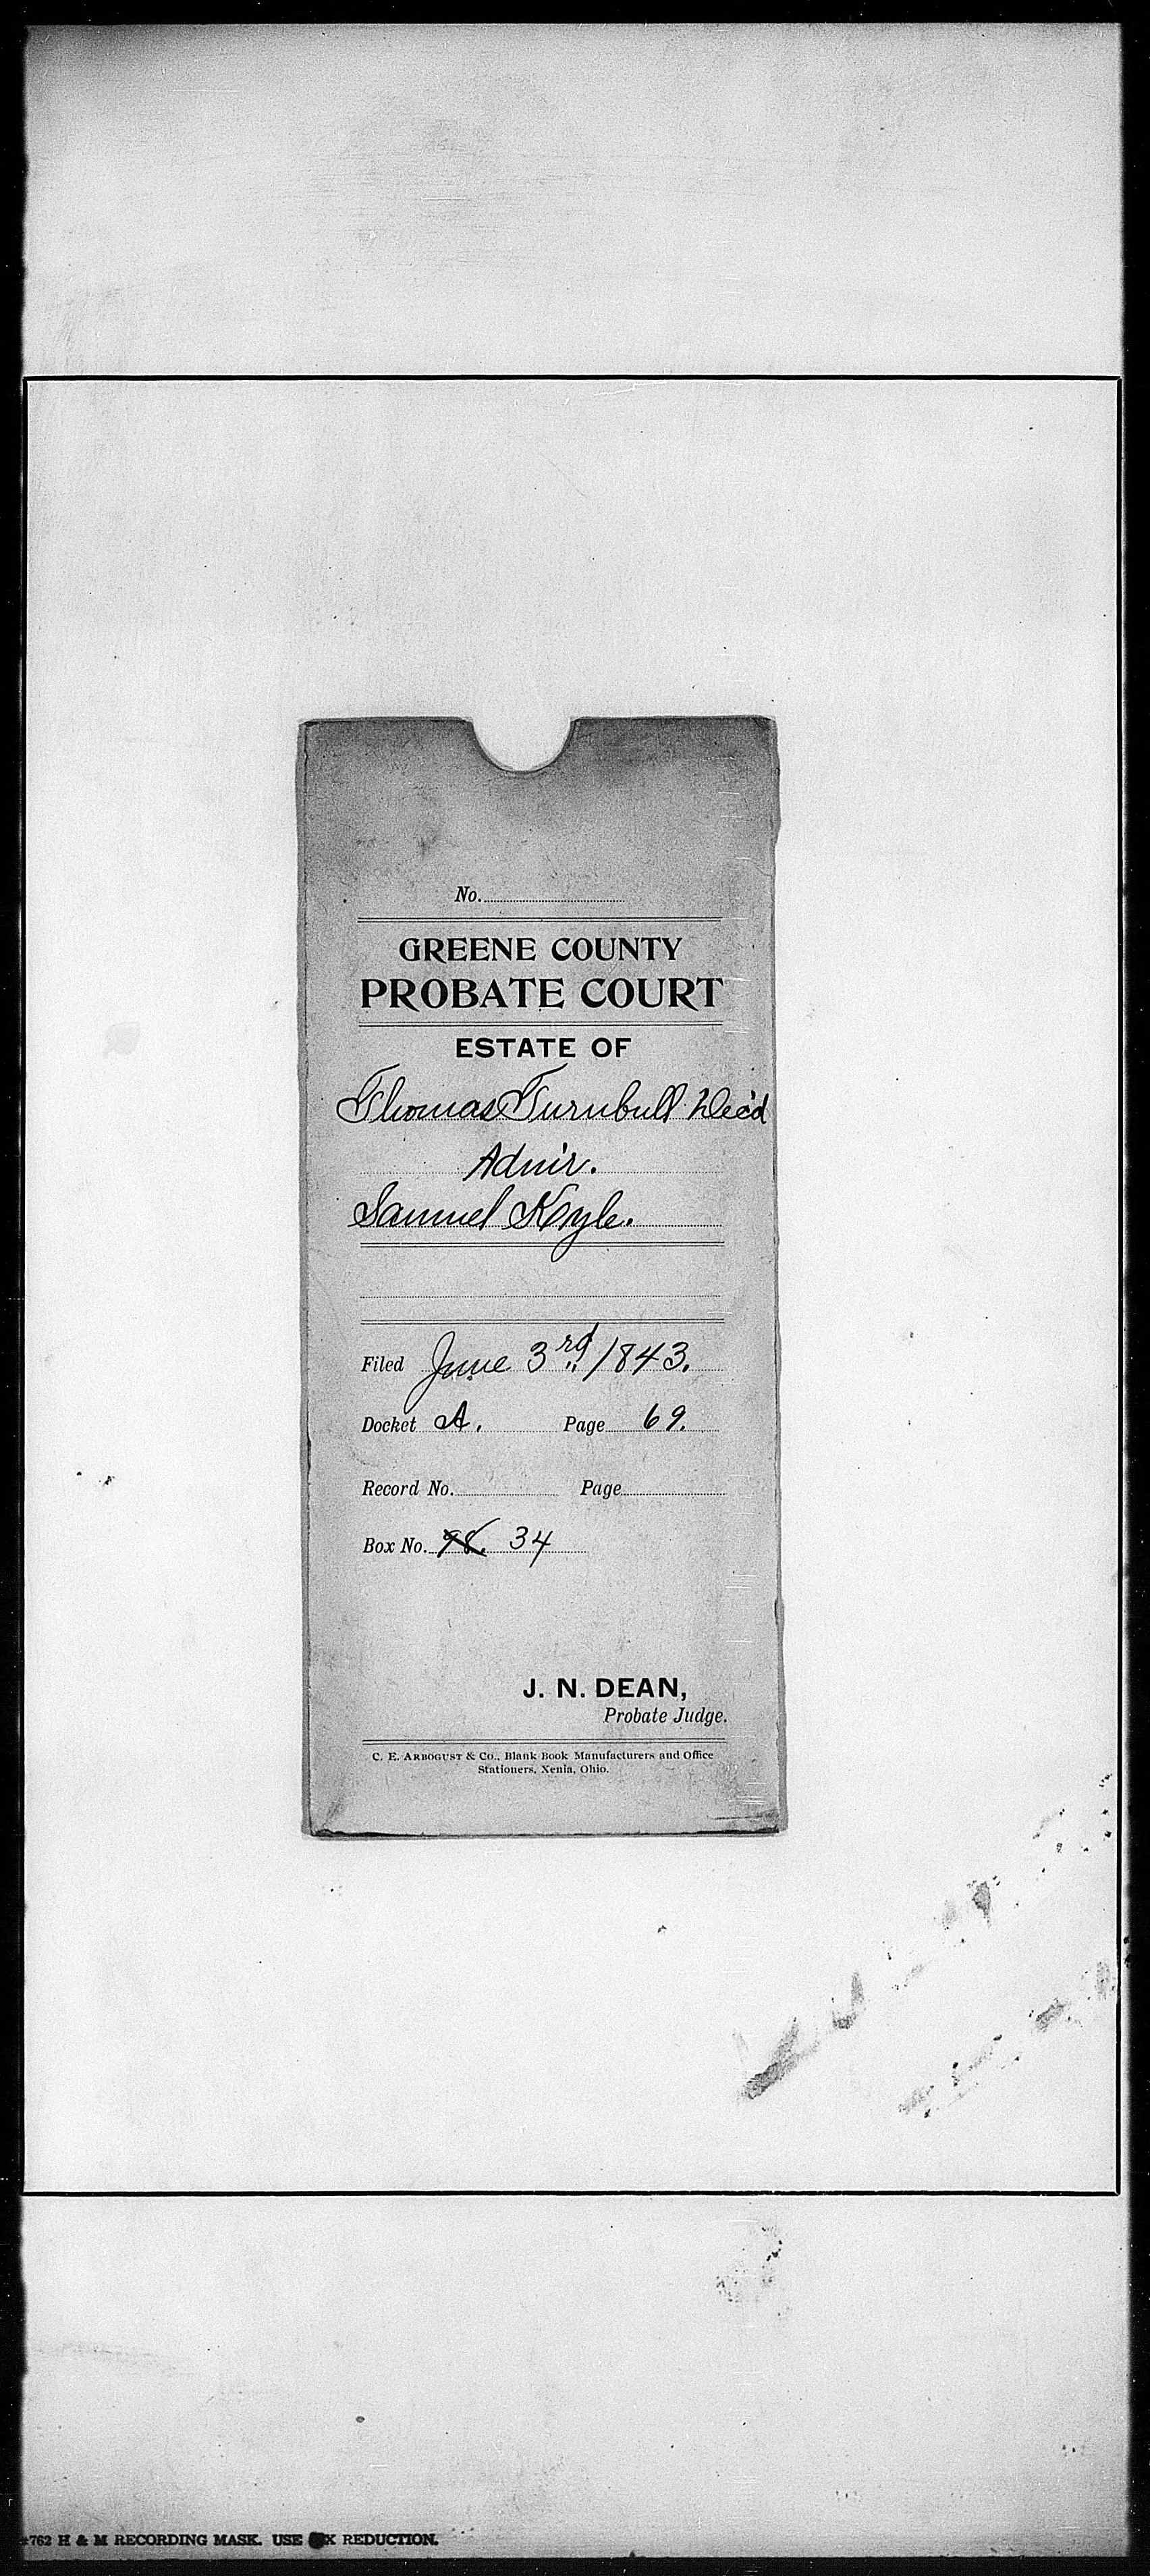 No.
GREENE COUNTY
PROBATE COURT
ESTATE OF
Thomas Turnbull Dec'd
Adm'r.
Samuel Kyle.
Filed June 3rd 1843.
Docket A. Page 69.
Record No. Page
Box No. 98. 34
J. N. DEAN,
Probate Judge.
C. E. ARBOGUST & Co., Blank Book Manufacturers and Office
Stationers, Xenia, Ohio.
762 H & M RECORDING MASK. USE X REDUCTION.